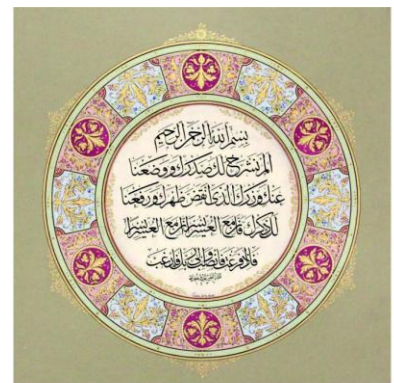 بسم الله الرحمن الرحيم
ألم نشرح لك صدرك ووضعنا
عنك وزرك الذي أنقض ظهرك ورفعنا
لك ذكرك فإن مع العسر يسرا إن مع العسر يسرا
فإذا فرغت فانصب وإلى ربك فارغب